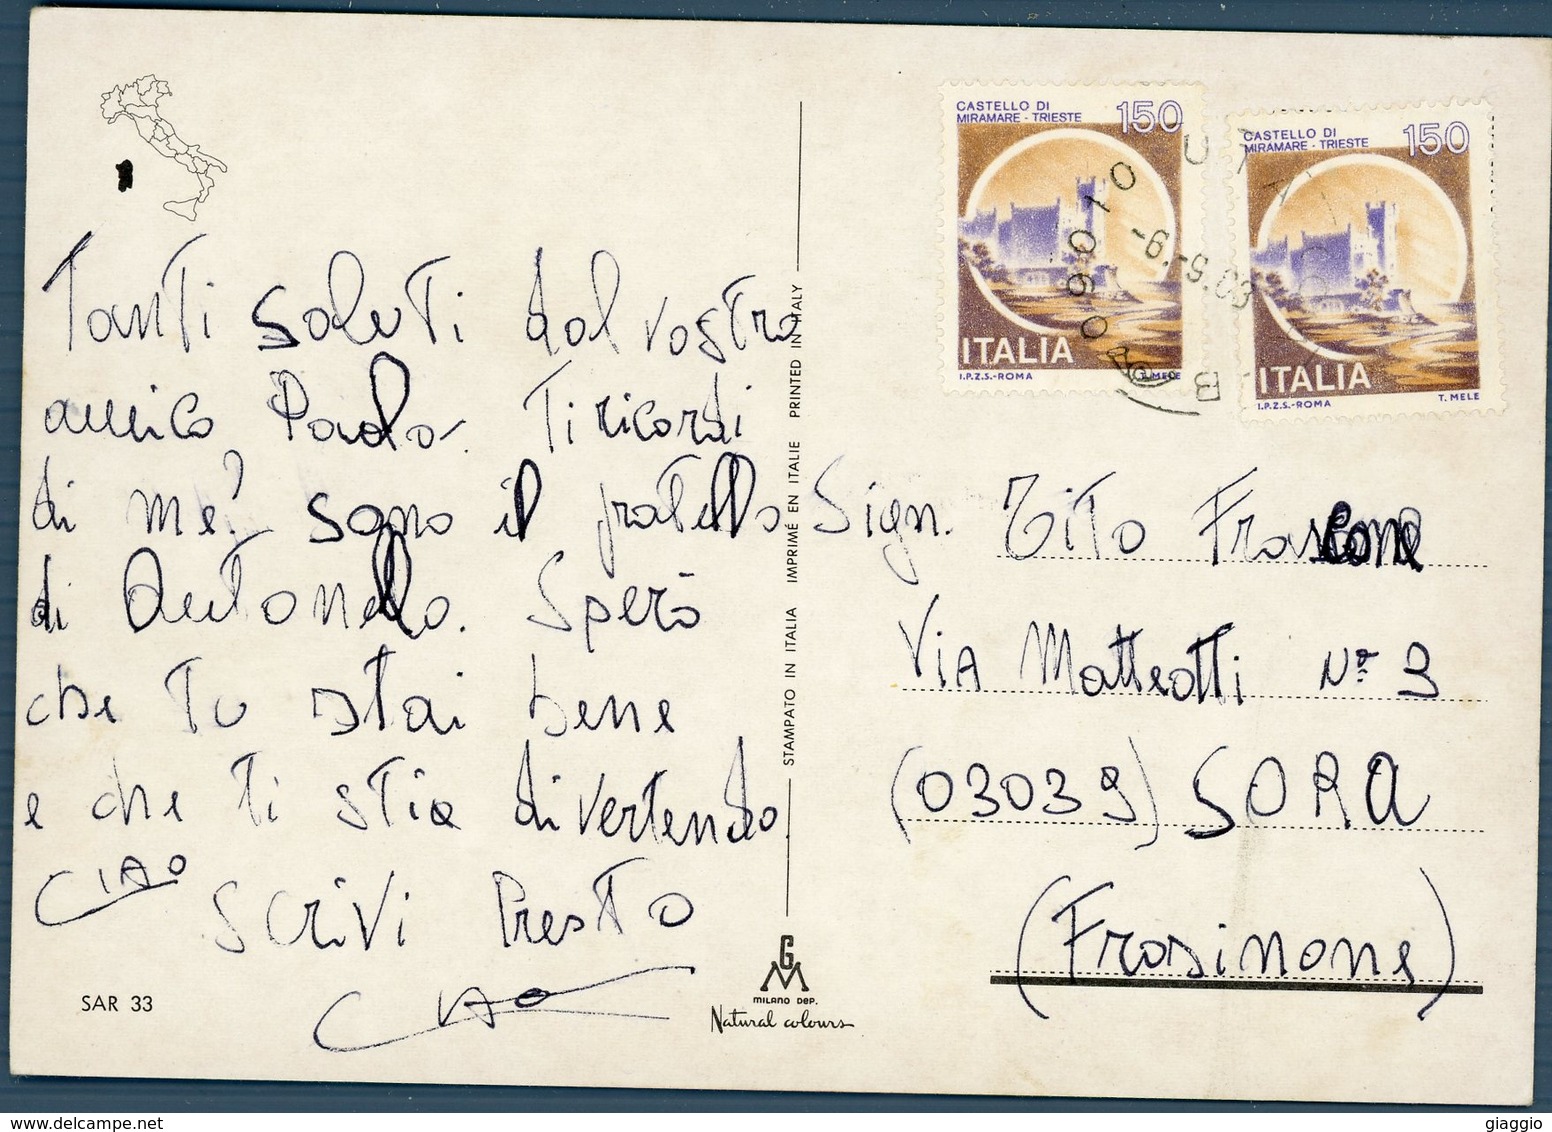 Tanti saluti dal vostro
amico Paolo. Ti ricordi
di me? sono il fratello
di Antonello. Spero
che tu stai bene
e che ti stia divertendo.
CIAO
SCRIVI PresTO
CIAO
SAR 33
STAMPATO IN ITALIA IMPRIMÉ EN ITALIE PRINTED IN ITALY
GM
MILANO DEP.
Natural colours
CASTELLO DI
MIRAMARE - TRIESTE
150
ITALIA
I.P.Z.S.-ROMA T. MELE
CASTELLO DI
MIRAMARE - TRIESTE
150
ITALIA
I.P.Z.S.-ROMA T. MELE
Sign. Tito
VIA Matteotti N° 3
(03039) SORA
(Frosinone)
giaggio